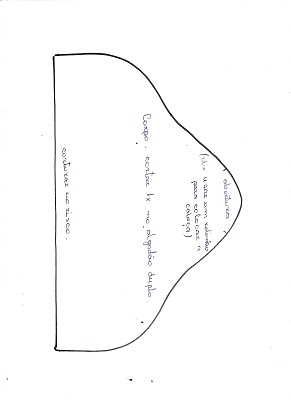 abertura
(dx usar um rolinho
para colocar a
cabeça)
Corpo - cortar 1x no algodão duplo.
costurar no risco.